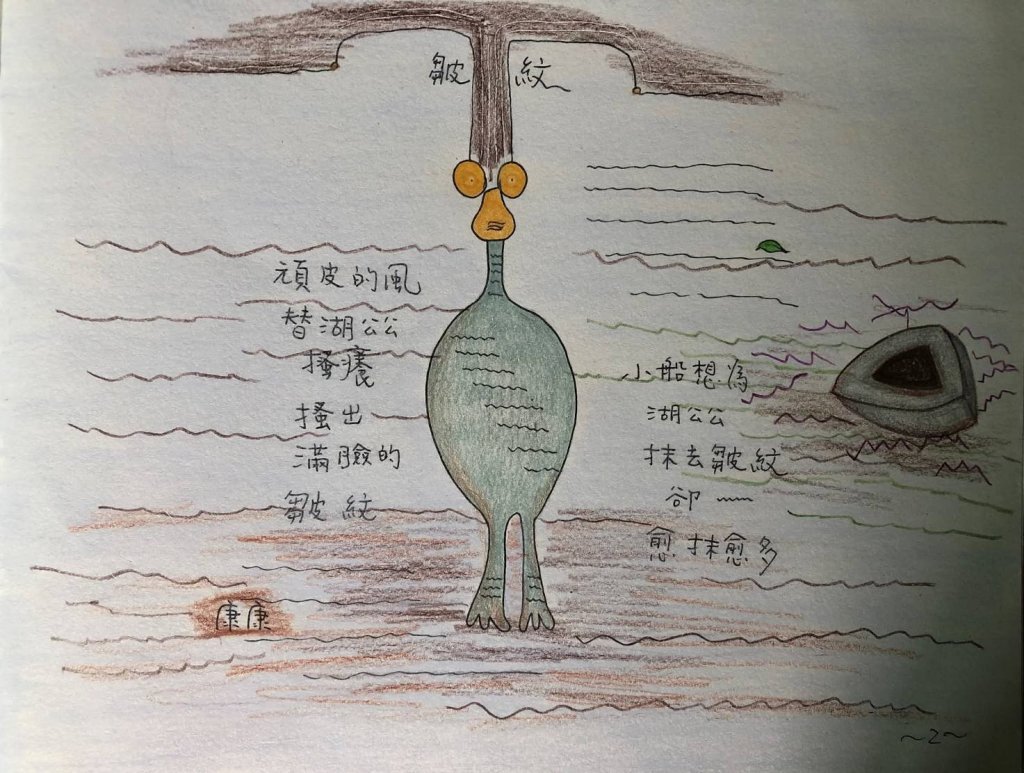 皺紋
頑皮的風
替湖公公
搔癢
搔出
滿臉的
皺紋
小船想為
湖公公
抹去皺紋
卻～
愈抹愈多
康康
～2～